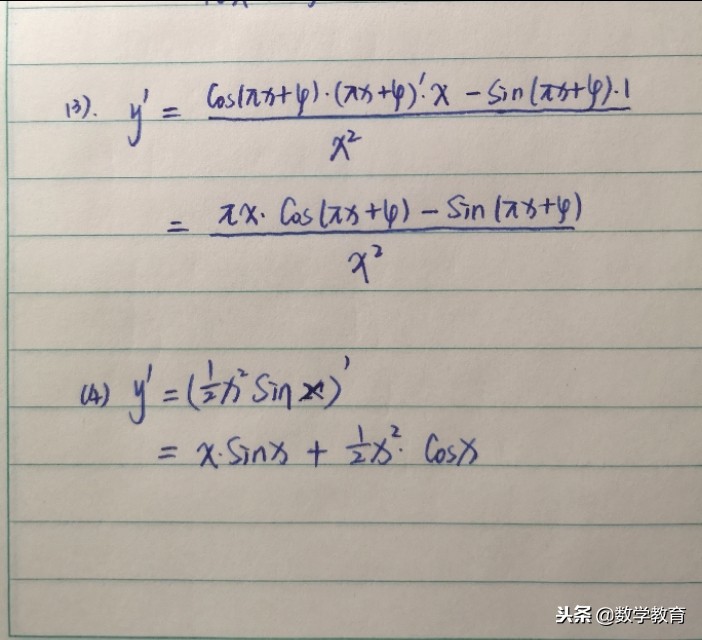 (3). y' = (cos(πx+φ)·(πx+φ)'·x − sin(πx+φ)·1) / x²
= (πx·cos(πx+φ) − sin(πx+φ)) / x²
(4) y' = (½x² sin x)'
= x·sinx + ½x²· cosx
头条 @数学教育